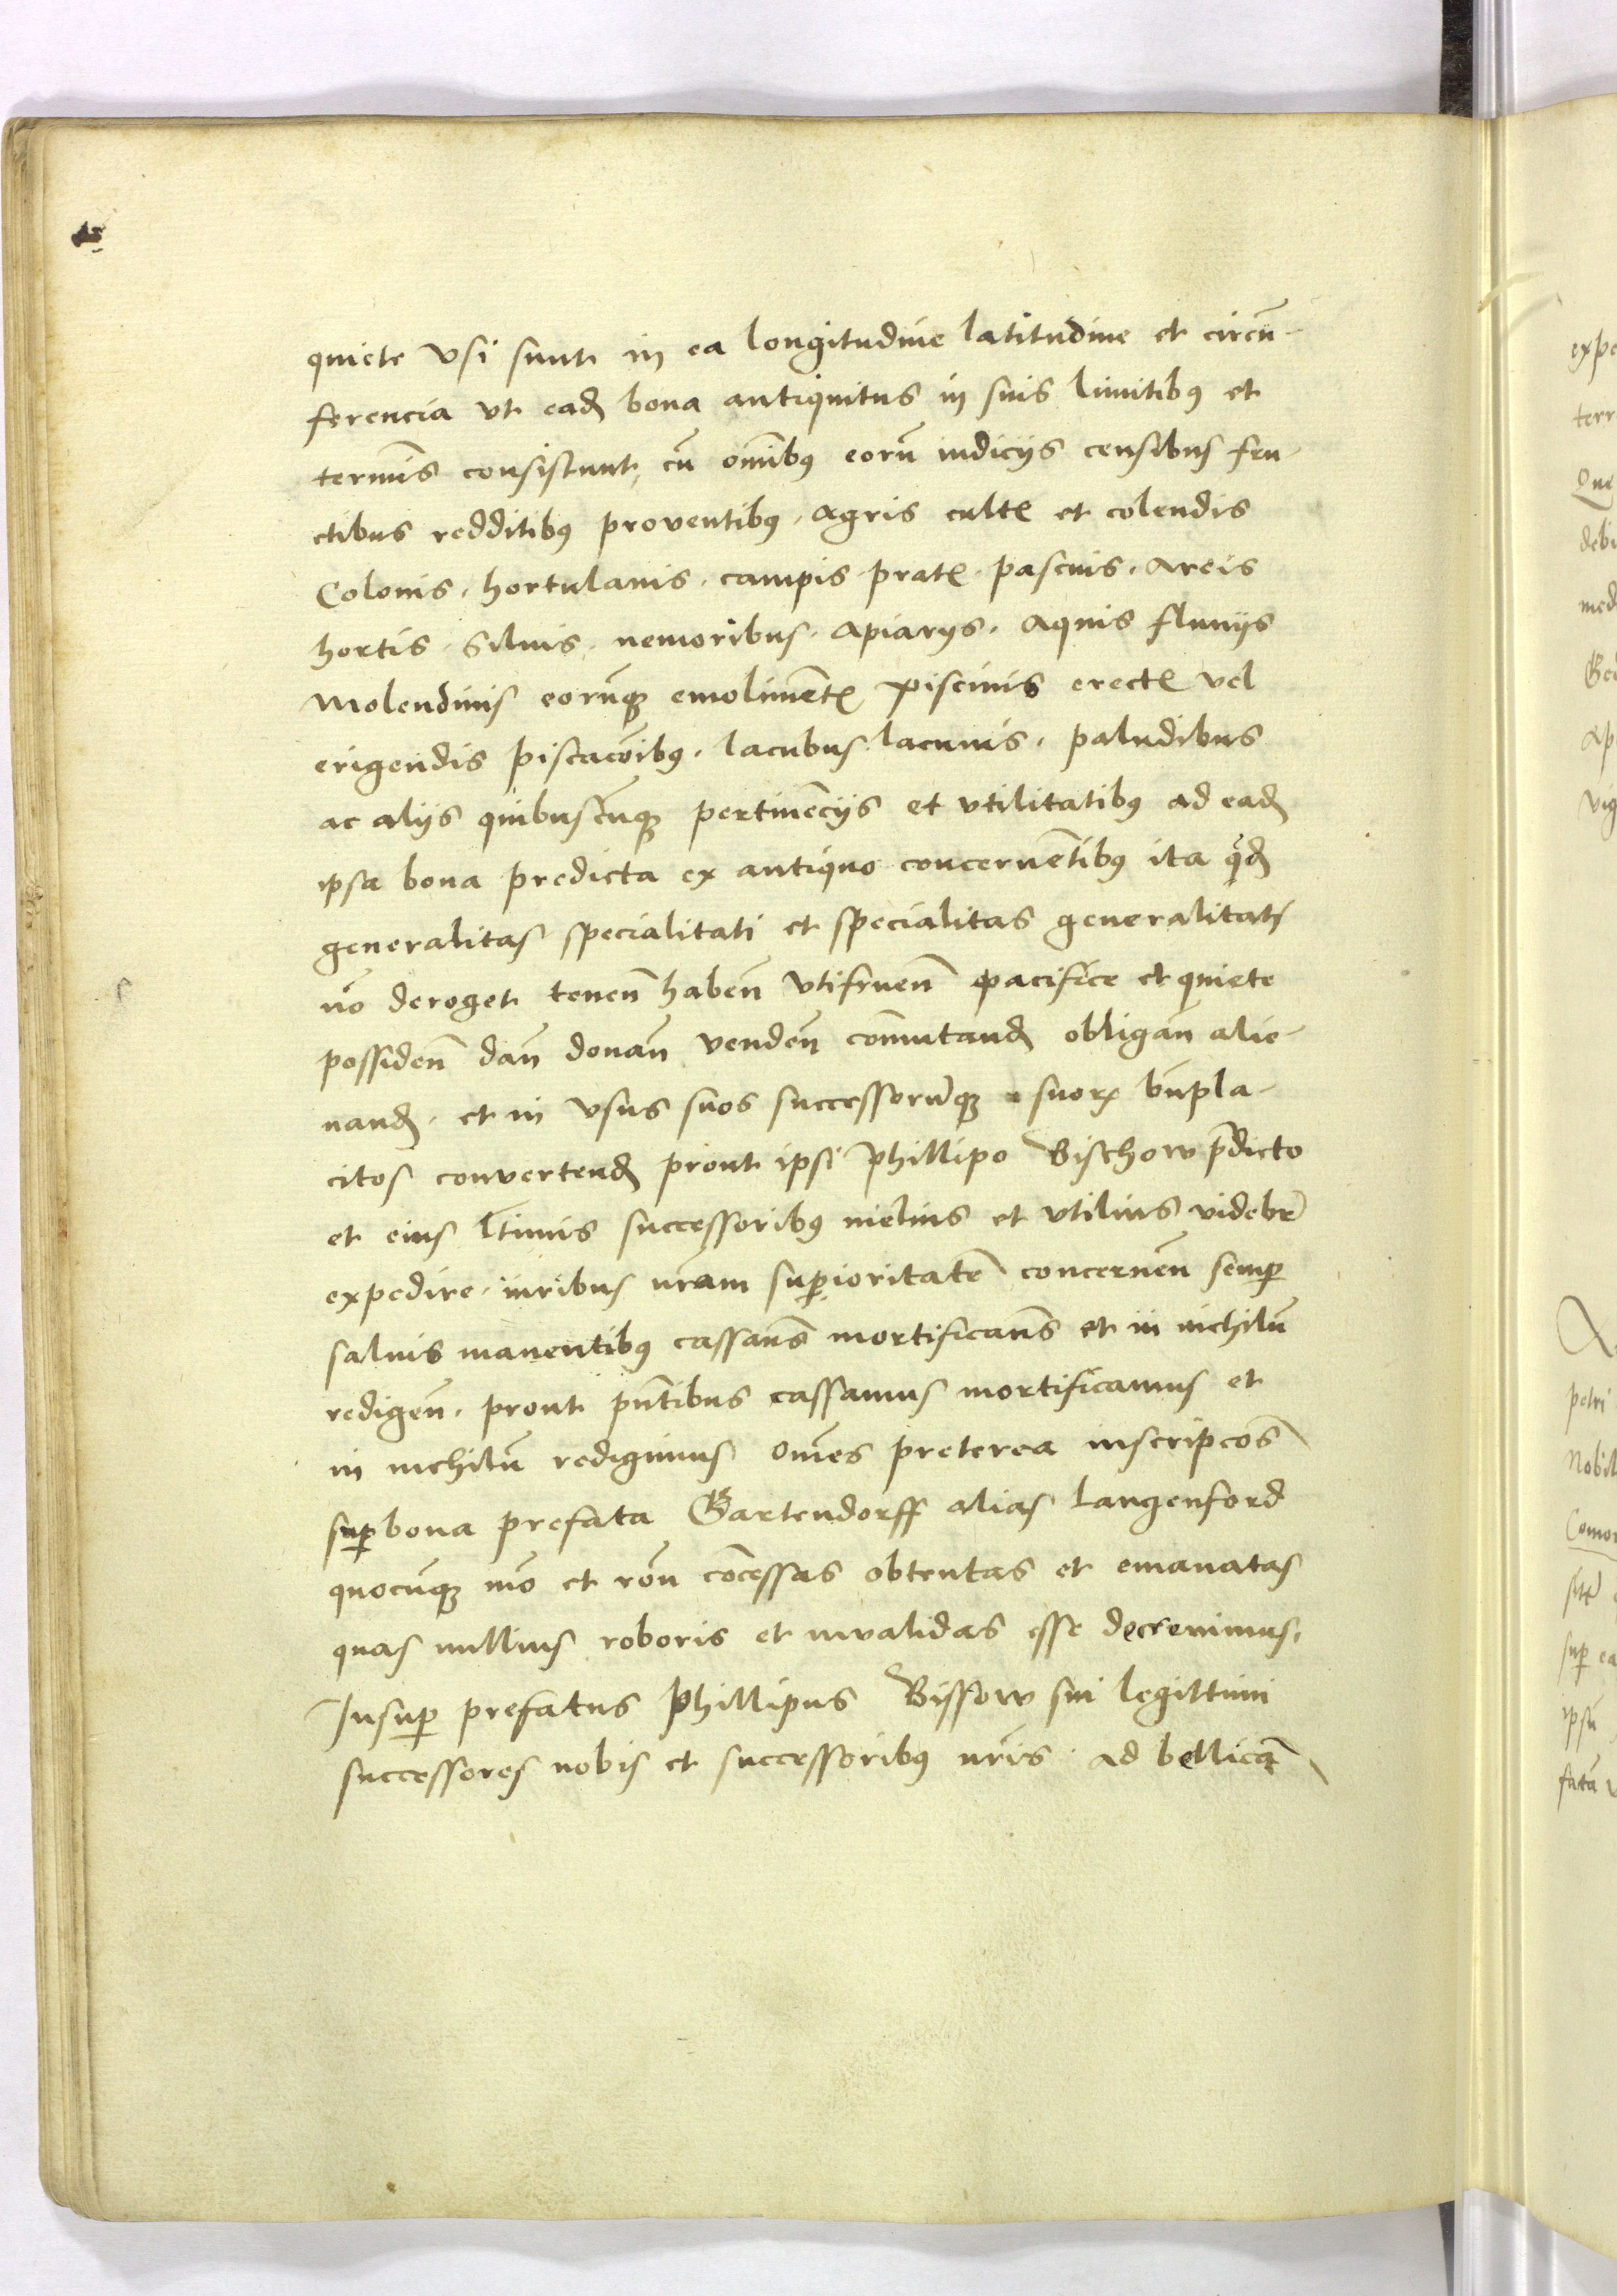 quiete vsi sunt in ea longitudine latitudine et circū-
ferencia vt eadꝫ bona antiquitus in suis limitibꝰ et
terminis consistunt, cū om̄ibꝰ eorū iudicijs censibus fru-
ctibus redditibꝰ proventibꝰ. agris cultꝭ et colendis
Colonis. hortulanis. campis pratꝭ. pascuis. areis
hortis. siluis. nemoribus. apiarijs. aquis fluuijs
molendinis eorūqꝫ emolimētꝭ piscinis erectꝭ vel
erigendis piscac̄oibꝰ. lacubus lacunis. paludibus
ac alijs quibuscūqꝫ pertinēcijs et vtilitatibꝰ ad eadꝫ
ipsa bona predicta ex antiquo concernētibꝰ ita qđ
generalitas specialitati et specialitas generalitati
nō deroget. tenen̄ haben̄ vtifruen̄ pacifice et quiete
possiden̄ dan̄ donan̄ venden̄ com̄utandꝫ obligan̄ alie-
nandꝫ. et in vsus suos successorūqꝫ suorꝝ bn̄pla-
citos convertendꝫ prout ipsi Phillipo Bischow p̄dicto
et eius ltimis successoribꝰ melius et vtilius videbr̄
expedire. iuribus nr̄am suꝑioritatē concernen̄ semꝑ
saluis manentibꝰ cassan̄s mortifican̄s et in nichilū
redigen̄. prout pn̄tibus cassamus mortificamus et
in nichilū redigimus om̄es preterea inscripc̄os
suꝑ bona prefata Gartendorff alias Langenford
quocūqꝫ mō et rōn cōcessas obtentas et emanatas
quas nullius roboris et invalidas esse decrevimus.
Insuꝑ prefatus Phillipus Bissow sui legittimi
successores nobis et successoribꝰ nr̄is. ad bellicā